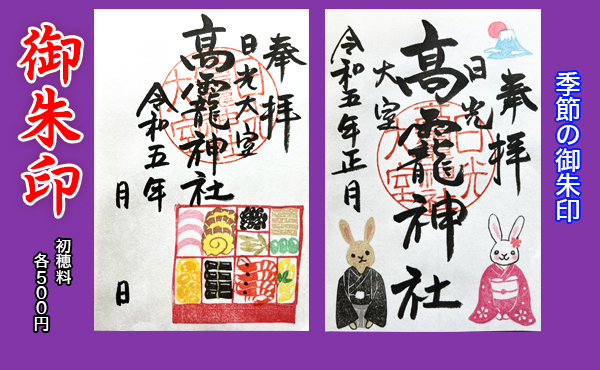 御朱印
初穂料
各500円
奉拝
日光大室
高龗神社
令和五年
月
日
季節の御朱印
奉拝
日光
大室
高龗神社
令和五年正月